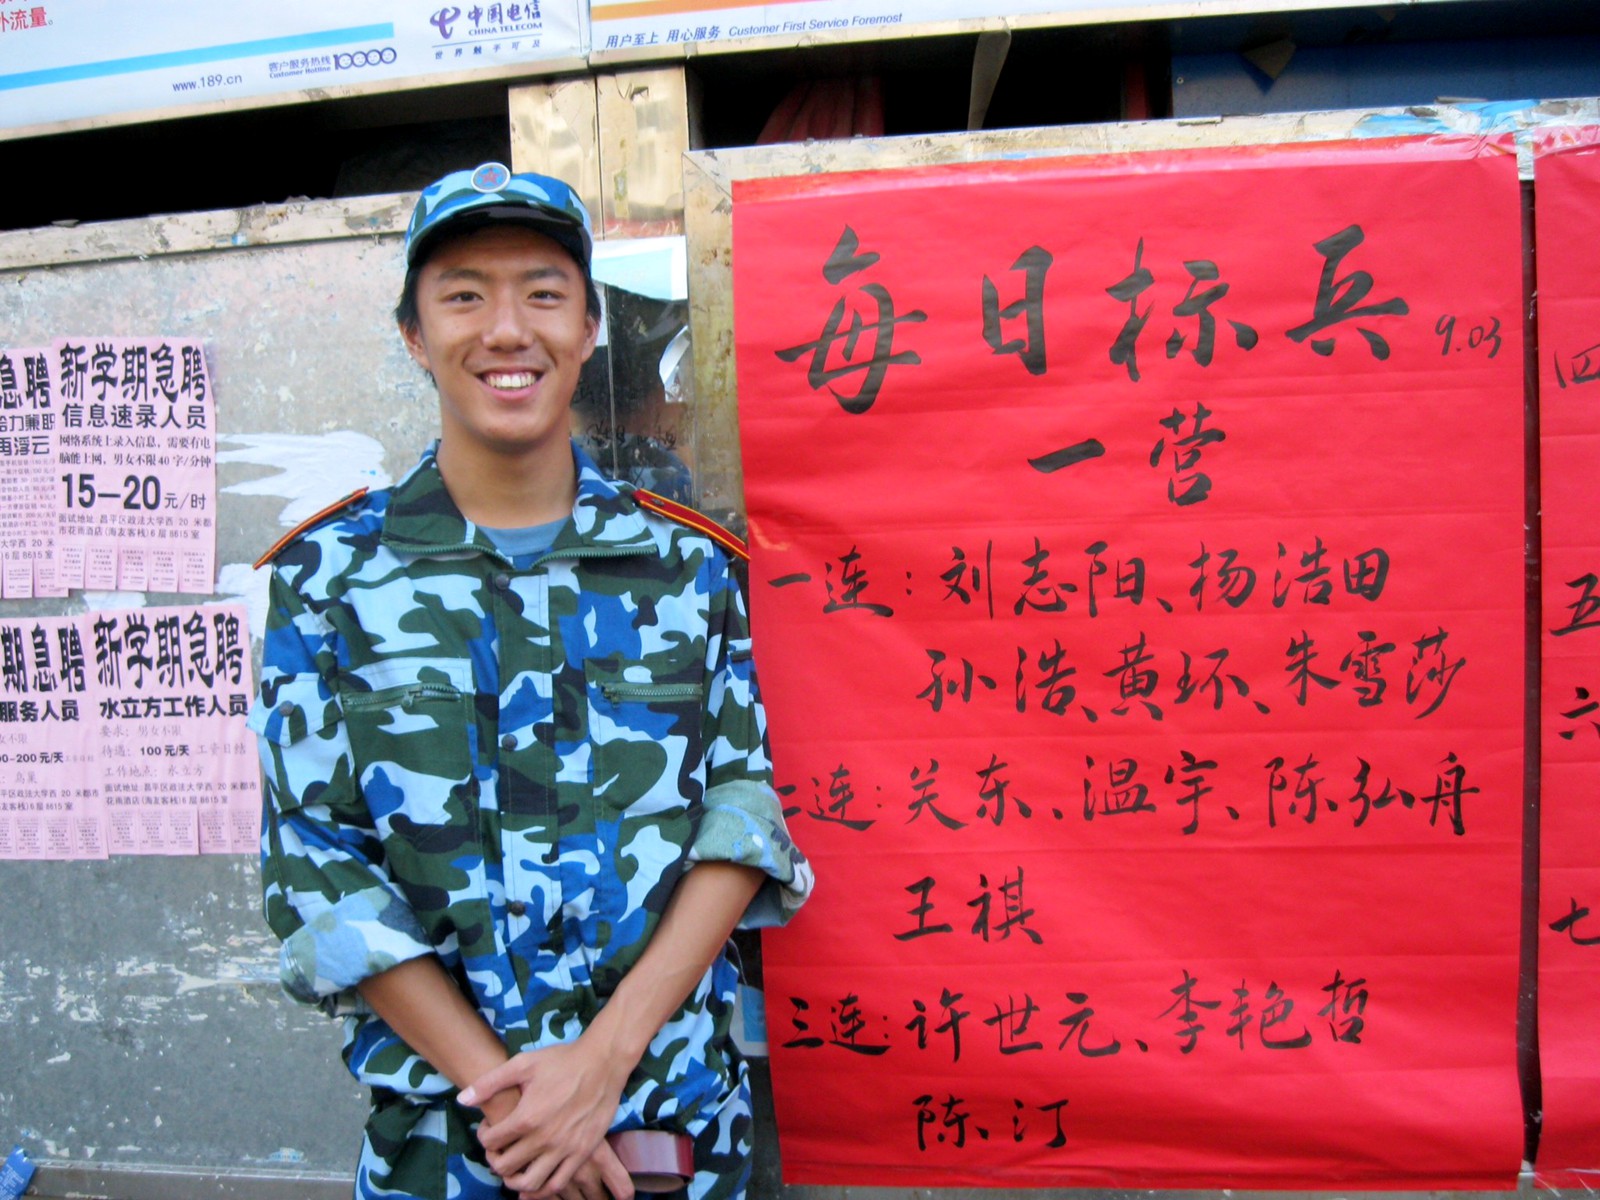 外流量。
中国电信
CHINA TELECOM
世界触手可及
客户服务热线
Customer Hotline 10000
www.189.cn
用户至上 用心服务 Customer First Service Foremost
每日标兵 9.03
一营
一连：刘志阳、杨浩田
孙浩、黄环、朱雪莎
二连：关东、温宇、陈弘舟
王祺
三连：许世元、李艳哲
陈汀
四
五
六
七
急聘
给力兼职
再浮云
新学期急聘
信息速录人员
网络系统上录入信息，需要有电
脑能上网，男女不限40字/分钟
15—20元/时
面试地址：昌平区政法大学西 20 米都
市花雨酒店(海友客栈)6层8615室
期急聘
服务人员
00-200元/天
鸟巢
新学期急聘
水立方工作人员
要求：男女不限
待遇：100元/天 工资日结
工作地点：水立方
面试地址：昌平区政法大学西 20 米都市
花雨酒店(海友客栈)6层8615室